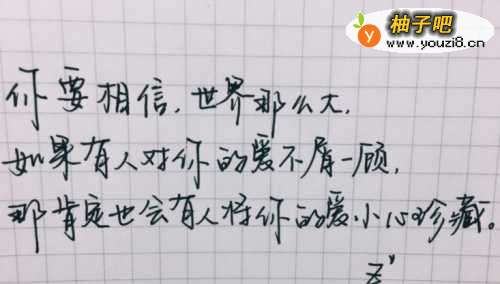 柚子吧
www.youzi8.cn
你要相信,世界那么大,
如果有人对你的爱不屑一顾,
那肯定也会有人将你的爱小心珍藏。